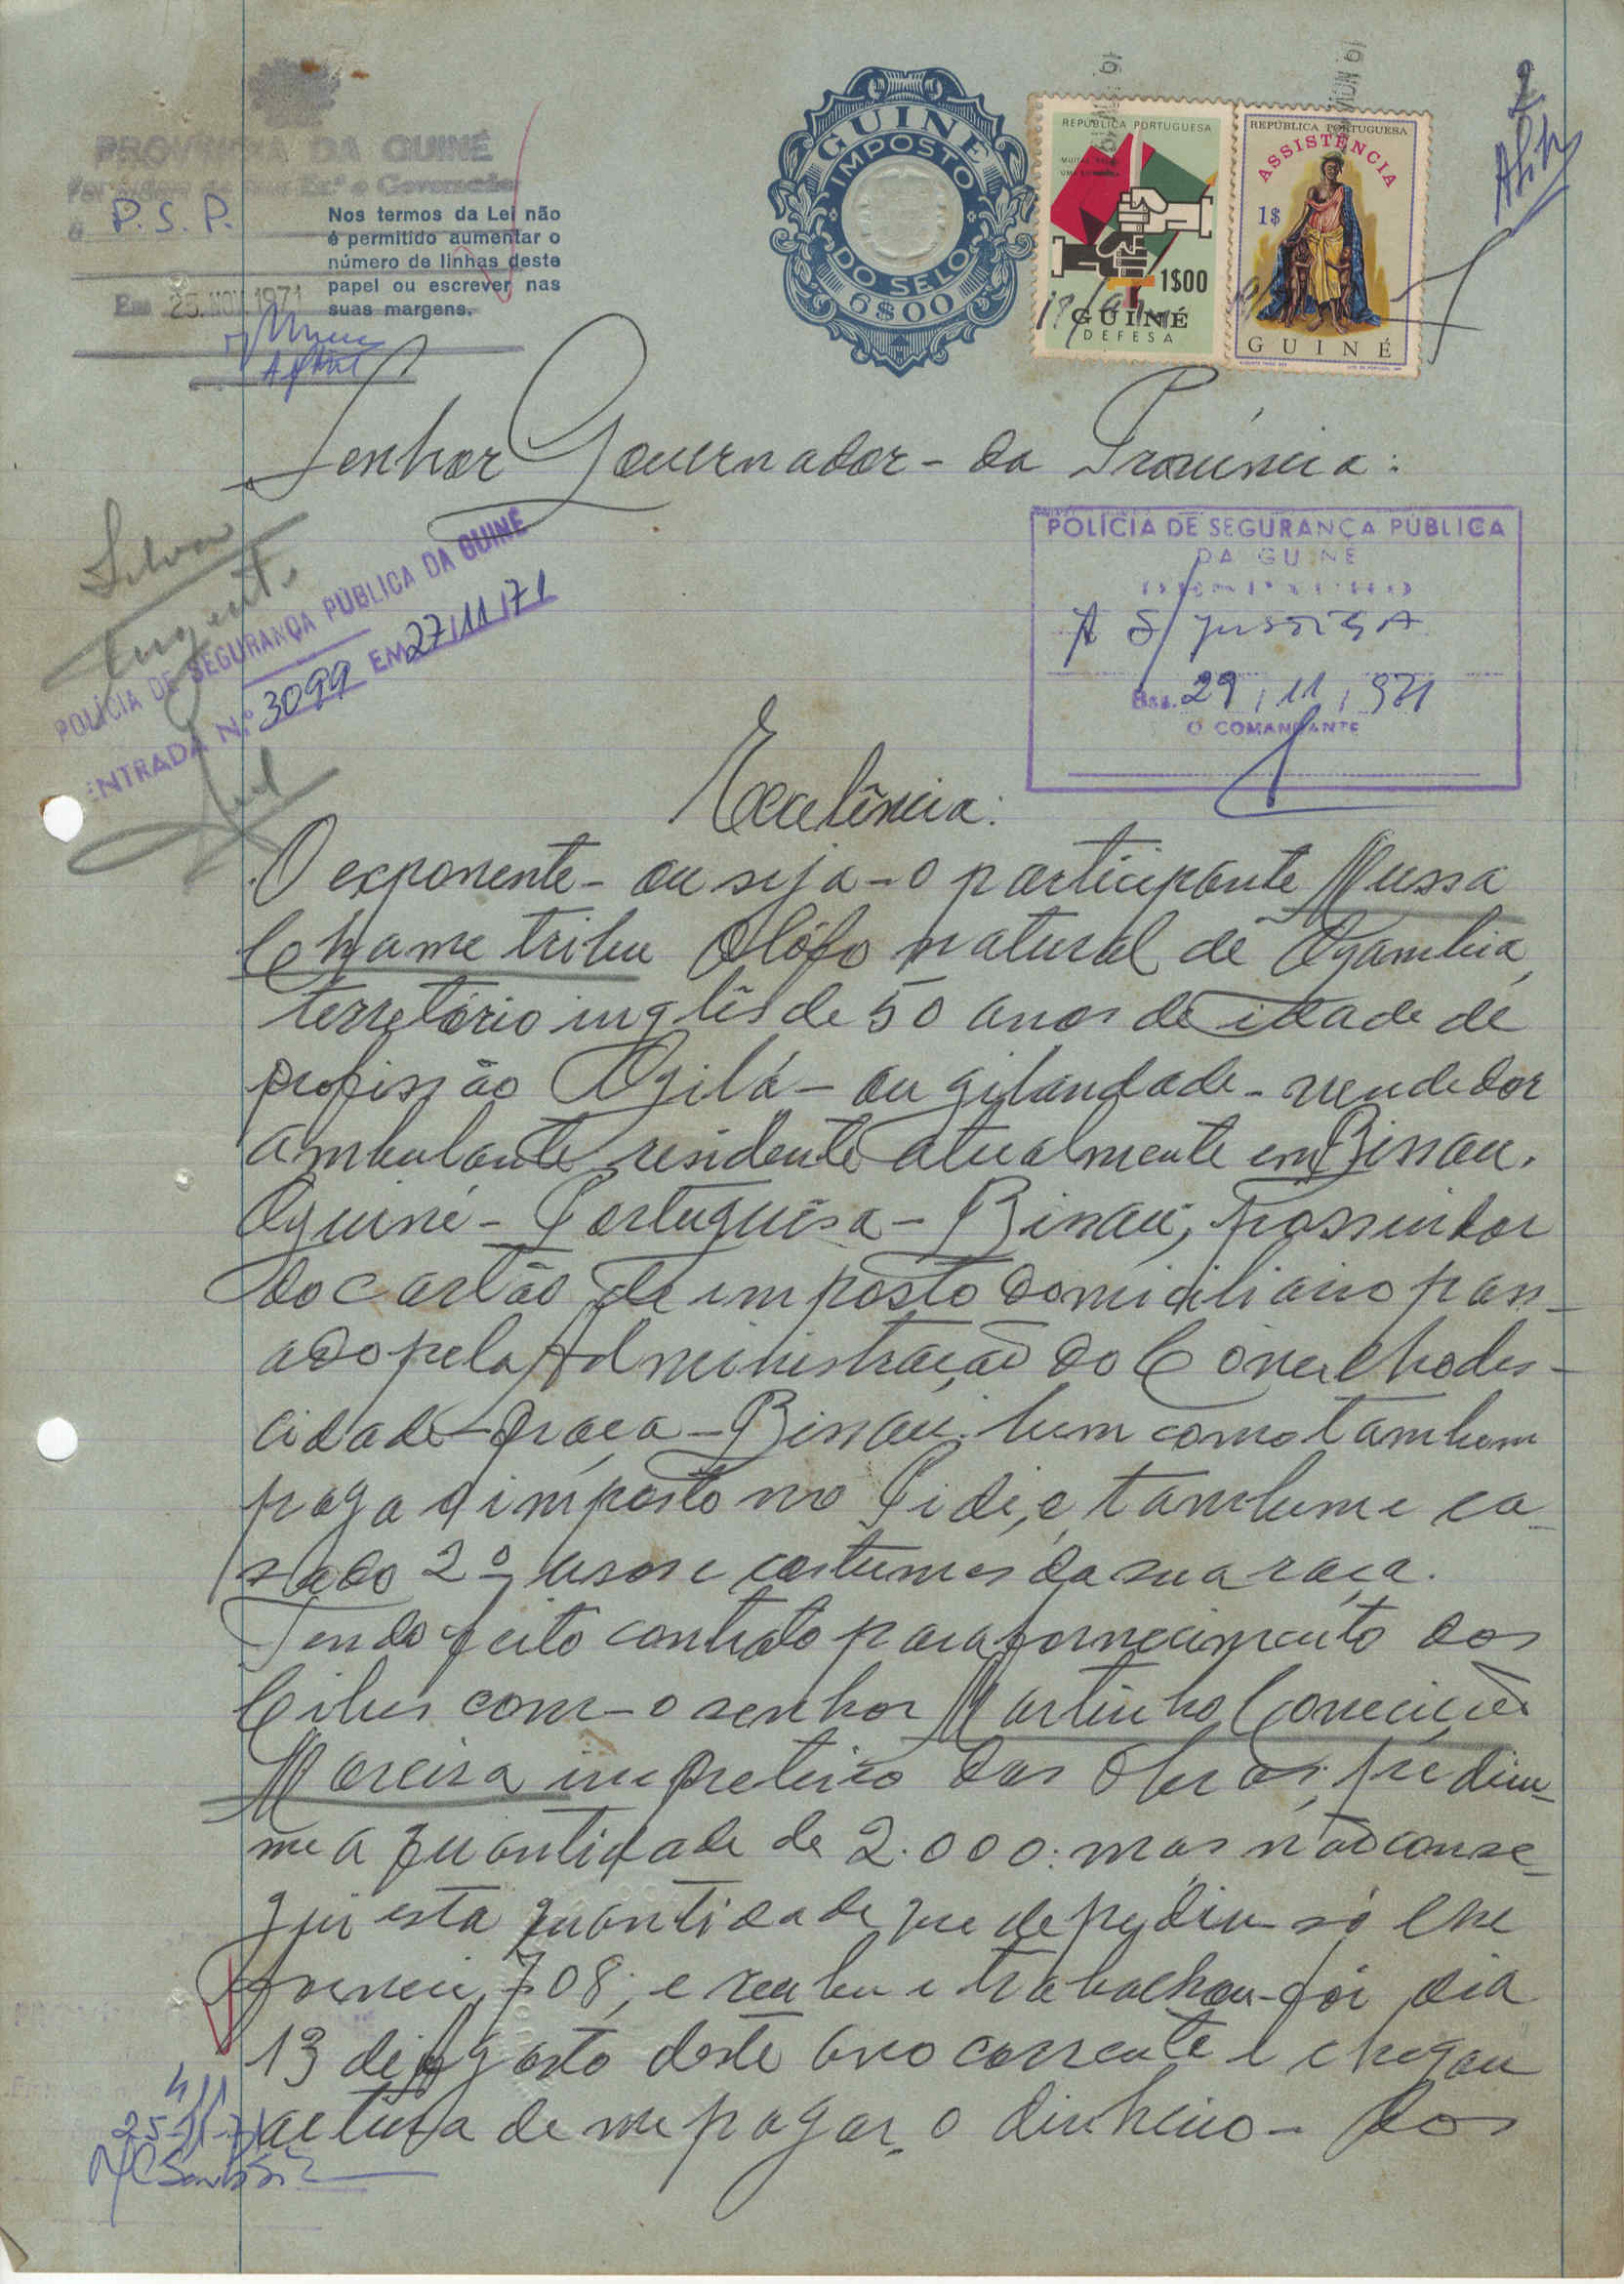 PROVÍNCIA DA GUINÉ
Por ordem de Sua Ex.ª o Governador
à P.S.P.
Em 25.NOV.1971
Nos termos da Lei não
é permitido aumentar o
número de linhas deste
papel ou escrever nas
suas margens.
GUINÉ
IMPOSTO
DO SELO
6$00
REPÚBLICA PORTUGUESA
1$00
GUINÉ
DEFESA
REPÚBLICA PORTUGUESA
ASSISTÊNCIA
1$
GUINÉ
2
Senhor Governador - da Província:
Silva
Urgente
POLÍCIA DE SEGURANÇA PÚBLICA DA GUINÉ
ENTRADA N.º 3099 EM 27/11/71
POLÍCIA DE SEGURANÇA PÚBLICA
DA GUINÉ
A S/ JUSTIÇA
Bss. 29/11/971
O COMANDANTE
Excelência:
O exponente - ou seja - o participante Mussa
Chame tribu Olófo natural de Ogambia,
terretório inglês de 50 anos de idade de
profissão Ogilá - ou gilandade - vendedor
ambulante residente atualmente em Bissau.
Oguiné - Portuguêsa - Bissau, possuidor
do cartão de imposto domiciliario pas-
ado pela Administração do Concelho des-
cidade - praça - Bissau. bem como tambem
paga o imposto no Pide, e tambem e ca-
sado 2º usos e costumes da sua raça.
Tendo feito contrato para fornecimento dos
Cibes com - o senhor Martinho Conceição
Moreira inpreteiro das Obras, pediu-
me a quantidade de 2.000: mas não conse-
gui esta quantidade que de pediu só lhe
forneci 708; e recebu e trabalhou - foi dia
13 de Agosto deste ano corrente e chegou
altura de me pagar o dinheiro - dos
4/1
25-11-71